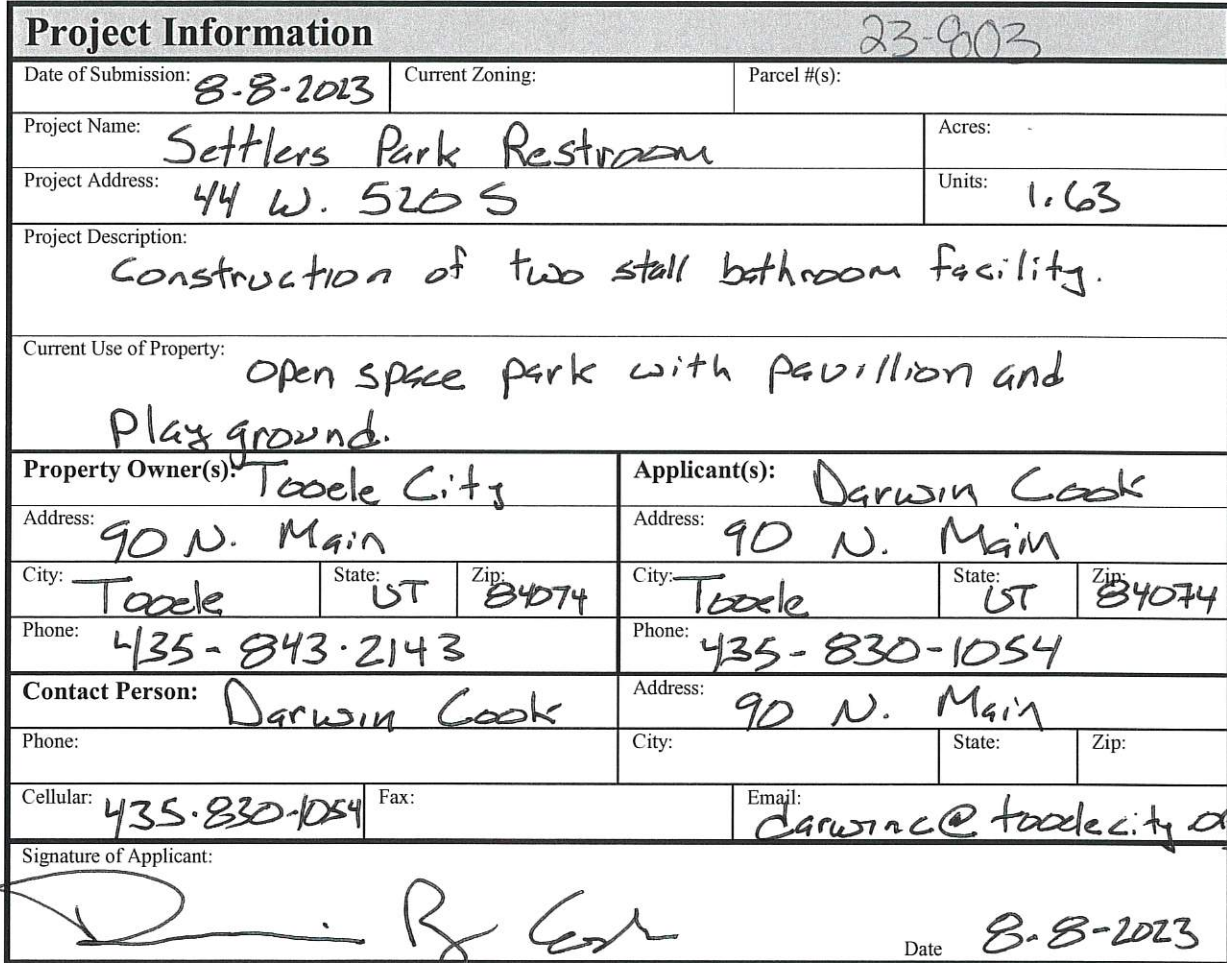 Project Information 23-803
Date of Submission: 8-8-2023 Current Zoning: Parcel #(s):
Project Name: Settlers Park Restroom Acres:
Project Address: 44 W. 520 S Units: 1.63
Project Description:
Construction of two stall bathroom facility.
Current Use of Property: open space park with pavillion and
Play ground.
Property Owner(s): Tooele City Applicant(s): Darwin Cook
Address: 90 N. Main Address: 90 N. Main
City: Tooele State: UT Zip: 84074 City: Tooele State: UT Zip: 84074
Phone: 435-843-2143 Phone: 435-830-1054
Contact Person: Darwin Cook Address: 90 N. Main
Phone: City: State: Zip:
Cellular: 435-830-1054 Fax: Email: darwinc@tooelecity.o
Signature of Applicant:
Date 8-8-2023